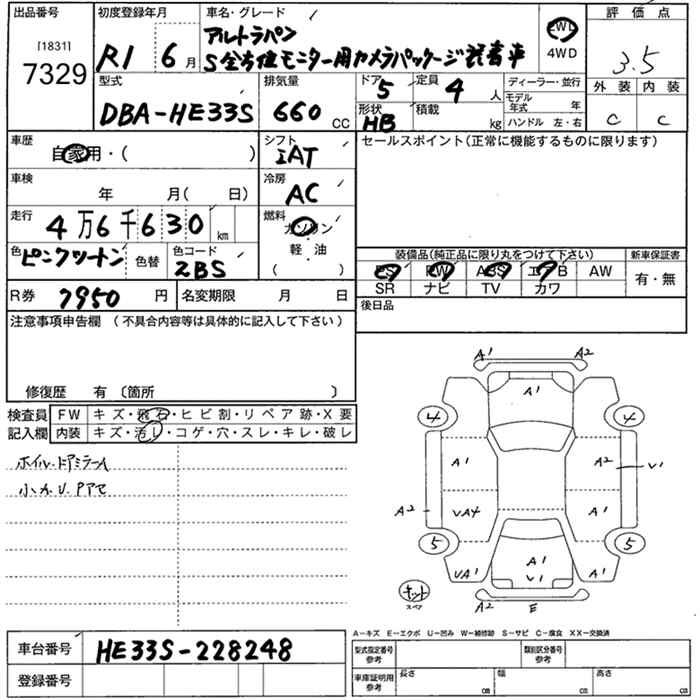 出品番号 初度登録年月 車名・グレード 評価点
[1831]
7329
R1 6月
アルトラパン
S全方位モニター用カメラパッケージ装着車
2WD
4WD
3.5
外装 内装
C C
型式 排気量 ドア 定員 ディーラー・並行
DBA-HE33S 660 CC 5 4 人 モデル年式 年
形状 積載
HB kg ハンドル 左・右
車歴 シフト セールスポイント(正常に機能するものに限ります)
自家用・( ) IAT
車検 冷房
年 月( 日) AC
走行 燃料
4万6千630 km ガソリン
軽・油
( )
色 色替 色コード
ピンクツートン ZBS
装備品(純正品に限り丸をつけて下さい) 新車保証書
PS PW ABS エアB AW 有・無
SR ナビ TV カワ
R券 7950 円 名変期限 月 日 後日品
注意事項申告欄 (不具合内容等は具体的に記入して下さい)
修復歴 有 〔箇所 〕
検査員 FW キズ・飛石・ヒビ割・リペア跡・X要
記入欄 内装 キズ・汚レ・コゲ・穴・スレ・キレ・破レ
ホイル・ドアミラーA
小カU.Pアセ
A1 A2
A1
4 4
A1 A2 V1
A2 VA4 A1
5 5
UA1 A1 V1 A1
キット
スペア
A2 E
A−キズ E−エクボ U−凹み W−補修跡 S−サビ C−腐食 XX−交換済
車台番号 HE33S-228248
型式指定番号 参考 類別区分番号 参考
登録番号
車庫証明用 参考 長さ cm 幅 cm 高さ cm